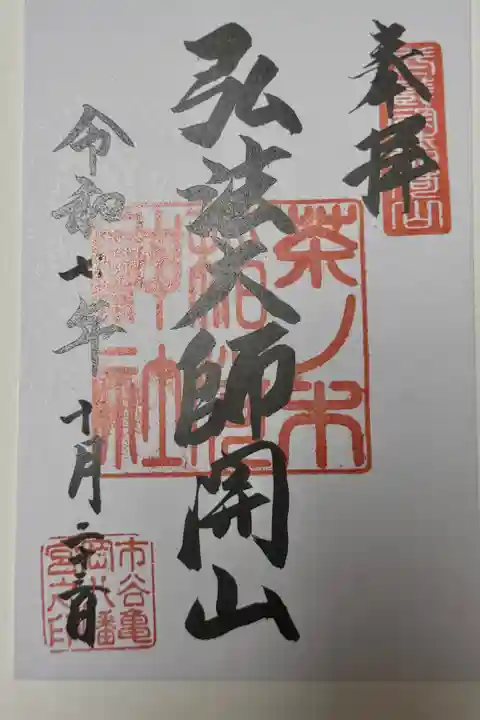 奉拝
弘法大師開山
茶ノ木
稲荷
神社
令和七年十月
市谷亀
岡八幡
宮之印